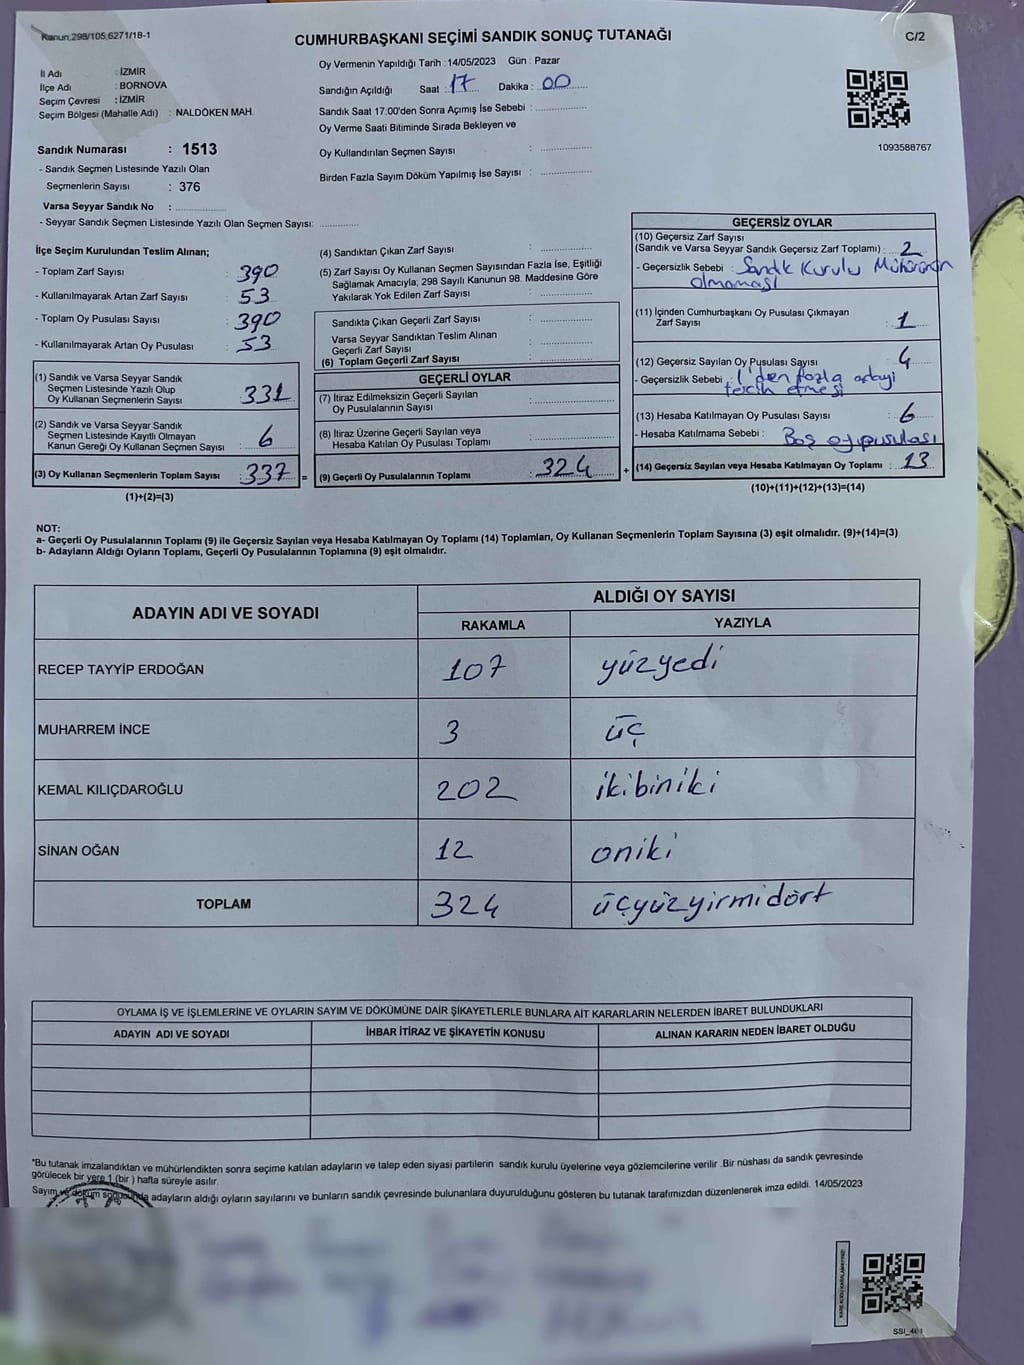 Kanun:298/105,6271/18-1
CUMHURBAŞKANI SEÇİMİ SANDIK SONUÇ TUTANAĞI
C/2
İl Adı : İZMİR
İlçe Adı : BORNOVA
Seçim Çevresi : İZMİR
Seçim Bölgesi (Mahalle Adı) : NALDÖKEN MAH.
Oy Vermenin Yapıldığı Tarih : 14/05/2023 Gün : Pazar
Sandığın Açıldığı Saat : 17 Dakika : 00
Sandık Saat 17:00'den Sonra Açımış İse Sebebi :
Oy Verme Saati Bitiminde Sırada Bekleyen ve
Oy Kullandırılan Seçmen Sayısı :
Birden Fazla Sayım Döküm Yapılmış İse Sayısı :
1093588767
Sandık Numarası : 1513
- Sandık Seçmen Listesinde Yazılı Olan
Seçmenlerin Sayısı : 376
Varsa Seyyar Sandık No :
- Seyyar Sandık Seçmen Listesinde Yazılı Olan Seçmen Sayısı:
İlçe Seçim Kurulundan Teslim Alınan;
- Toplam Zarf Sayısı : 390
- Kullanılmayarak Artan Zarf Sayısı : 53
- Toplam Oy Pusulası Sayısı : 390
- Kullanılmayarak Artan Oy Pusulası : 53
(1) Sandık ve Varsa Seyyar Sandık
Seçmen Listesinde Yazılı Olup
Oy Kullanan Seçmenlerin Sayısı : 331
(2) Sandık ve Varsa Seyyar Sandık
Seçmen Listesinde Kayıtlı Olmayan
Kanun Gereği Oy Kullanan Seçmen Sayısı : 6
(3) Oy Kullanan Seçmenlerin Toplam Sayısı : 337 =
(1)+(2)=(3)
(4) Sandıktan Çıkan Zarf Sayısı :
(5) Zarf Sayısı Oy Kullanan Seçmen Sayısından Fazla İse, Eşitliği
Sağlamak Amacıyla; 298 Sayılı Kanunun 98. Maddesine Göre
Yakılarak Yok Edilen Zarf Sayısı :
Sandıkta Çıkan Geçerli Zarf Sayısı :
Varsa Seyyar Sandıktan Teslim Alınan
Geçerli Zarf Sayısı :
(6) Toplam Geçerli Zarf Sayısı :
GEÇERLİ OYLAR
(7) İtiraz Edilmeksizin Geçerli Sayılan
Oy Pusulalarının Sayısı :
(8) İtiraz Üzerine Geçerli Sayılan veya
Hesaba Katılan Oy Pusulası Toplamı :
(9) Geçerli Oy Pusulalarının Toplamı : 324 +
GEÇERSİZ OYLAR
(10) Geçersiz Zarf Sayısı
(Sandık ve Varsa Seyyar Sandık Geçersiz Zarf Toplamı) : 2
- Geçersizlik Sebebi : Sandık Kurulu Mühürünün
olmaması
(11) İçinden Cumhurbaşkanı Oy Pusulası Çıkmayan
Zarf Sayısı : 1
(12) Geçersiz Sayılan Oy Pusulası Sayısı : 4
- Geçersizlik Sebebi : 1'den fazla adayı
tercih etmesi
(13) Hesaba Katılmayan Oy Pusulası Sayısı : 6
- Hesaba Katılmama Sebebi : Boş oy pusulası
(14) Geçersiz Sayılan veya Hesaba Katılmayan Oy Toplamı : 13
(10)+(11)+(12)+(13)=(14)
NOT:
a- Geçerli Oy Pusulalarının Toplamı (9) ile Geçersiz Sayılan veya Hesaba Katılmayan Oy Toplamı (14) Toplamları, Oy Kullanan Seçmenlerin Toplam Sayısına (3) eşit olmalıdır. (9)+(14)=(3)
b- Adayların Aldığı Oyların Toplamı, Geçerli Oy Pusulalarının Toplamına (9) eşit olmalıdır.
ADAYIN ADI VE SOYADI ALDIĞI OY SAYISI
RAKAMLA YAZIYLA
RECEP TAYYİP ERDOĞAN 107 yüzyedi
MUHARREM İNCE 3 üç
KEMAL KILIÇDAROĞLU 202 ikibiniki
SİNAN OĞAN 12 oniki
TOPLAM 324 üçyüzyirmidört
OYLAMA İŞ VE İŞLEMLERİNE VE OYLARIN SAYIM VE DÖKÜMÜNE DAİR ŞİKAYETLERLE BUNLARA AİT KARARLARIN NELERDEN İBARET BULUNDUKLARI
ADAYIN ADI VE SOYADI İHBAR İTİRAZ VE ŞİKAYETİN KONUSU ALINAN KARARIN NEDEN İBARET OLDUĞU
*Bu tutanak imzalandıktan ve mühürlendikten sonra seçime katılan adayların ve talep eden siyasi partilerin sandık kurulu üyelerine veya gözlemcilerine verilir .Bir nüshası da sandık çevresinde
görülecek bir yere 1 (bir ) hafta süreyle asılır.
Sayım ve döküm sonucunda adayların aldığı oyların sayılarını ve bunların sandık çevresinde bulunanlara duyurulduğunu gösteren bu tutanak tarafımızdan düzenlenerek imza edildi. 14/05/2023